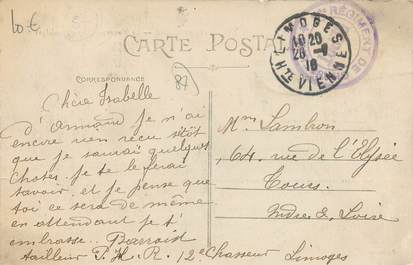 10 €
CARTE POSTALE
LIMOGES
10 20
18
Hte VIENNE
RÉGIMENT DE
CORRESPONDANCE
87
Chère Isabelle
D'Armand je n'ai
encore rien reçu sitôt
que je saurai quelques
choses je te le ferai
savoir. et je pense que
toi ce sera de même
en attendant je t'
embrasse..
tailleur P. H. R. 12e Chasseur Limoges
Mme Lambron
64 rue de l'Elysée
Tours
Indre & Loire